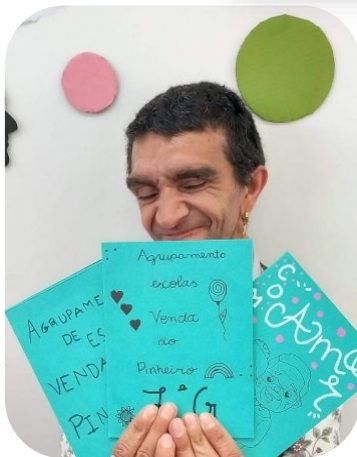 Agrupamento
escolas
Venda
do
Pinheiro
1ª G
AGRUPAME
DE ES
VENDA
PIN
com
Amor